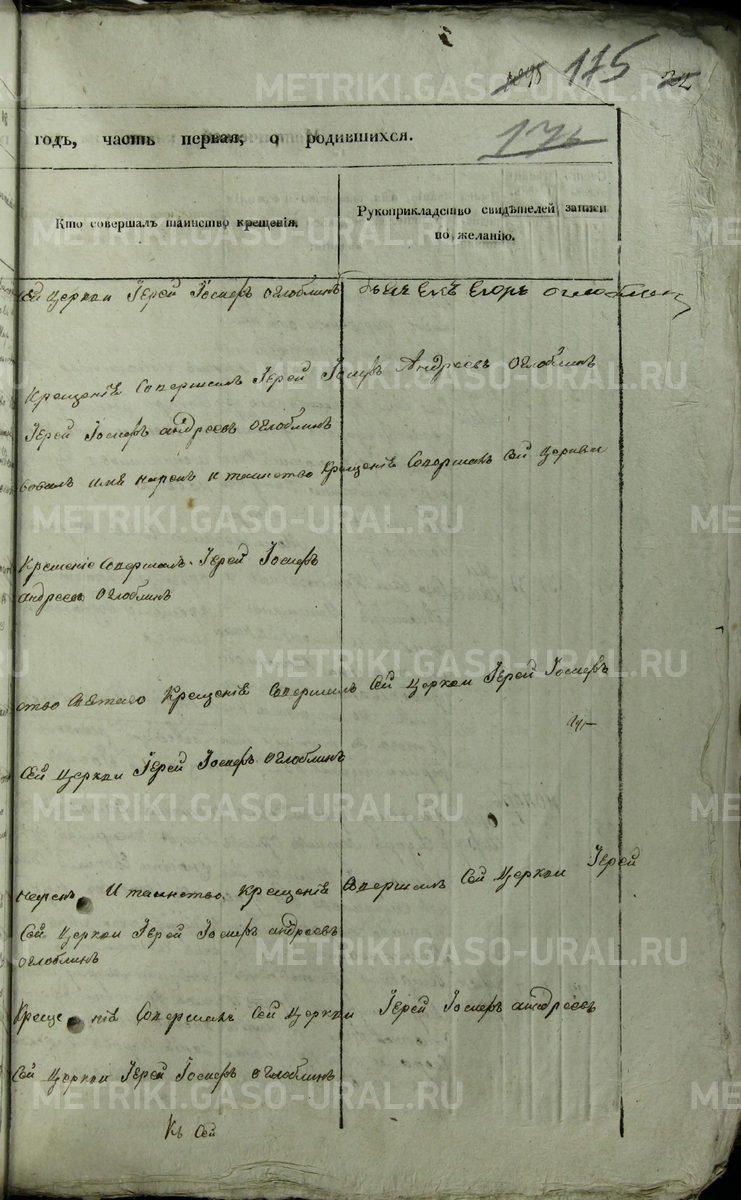 175
годъ, часть первая, о родившихся.
176
Кто совершалъ таинство крещенія.
Рукоприкладство свидѣтелей записи
по желанію.
сей церкви Іерей Іосифъ Оглоблинъ
Егоръ Оглоблин
Крещеніе Совершалъ Іерей Іосифъ Андреевъ Оглоблинъ
Іерей Іосифъ андреевъ Оглоблинъ
имя нарекъ и таинство Крещеніе Совершалъ Сей Церкви
Крещеніе Совершалъ Іерей Іосифъ
андреевъ Оглоблинъ
ство Святаго Крещеніе Совершалъ Сей Церкви Іерей Іосифъ
Сей Церкви Іерей Іосифъ Оглоблинъ
нарекъ И таинство Крещеніе Совершалъ Сей Церкви Іерей
Сей Церкви Іерей Іосифъ андреевъ
Оглоблинъ
Крещеніе Совершалъ Сей Церкви Іерей Іосифъ андреевъ
Сей Церкви Іерей Іосифъ Оглоблинъ
Къ Сей
METRIKI.GASO-URAL.RU